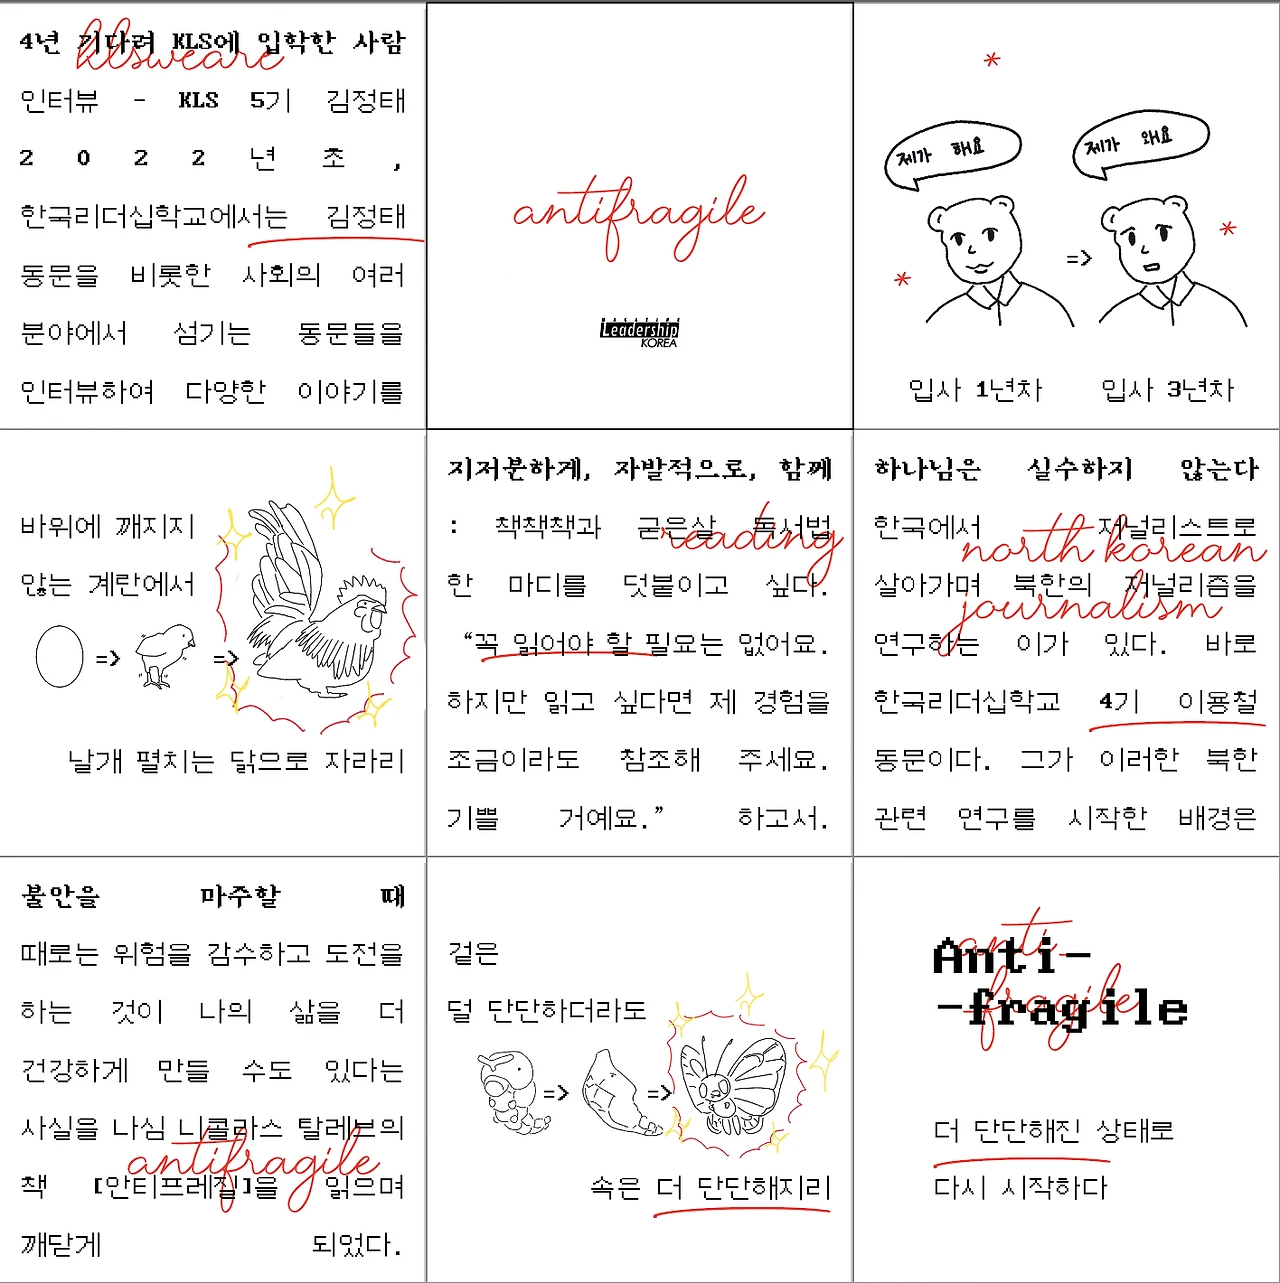 4년 기다려 KLS에 입학한 사람
klsweare
인터뷰 - KLS 5기 김정태
2022년 초,
한국리더십학교에서는 김정태
동문을 비롯한 사회의 여러
분야에서 섬기는 동문들을
인터뷰하여 다양한 이야기를
antifragile
MAGAZINE
Leadership
KOREA
제가 해요
제가 왜요
=>
입사 1년차
입사 3년차
바위에 깨지지
않는 계란에서
=> =>
날개 펼치는 닭으로 자라리
지저분하게, 자발적으로, 함께
: 책책책과 굳은살 독서법
reading
한 마디를 덧붙이고 싶다.
“꼭 읽어야 할 필요는 없어요.
하지만 읽고 싶다면 제 경험을
조금이라도 참조해 주세요.
기쁠 거예요.” 하고서.
하나님은 실수하지 않는다
한국에서 저널리스트로
north korean
살아가며 북한의 저널리즘을
journalism
연구하는 이가 있다. 바로
한국리더십학교 4기 이용철
동문이다. 그가 이러한 북한
관련 연구를 시작한 배경은
불안을 마주할 때
때로는 위험을 감수하고 도전을
하는 것이 나의 삶을 더
건강하게 만들 수도 있다는
사실을 나심 니콜라스 탈레브의
antifragile
책 [안티프레질]을 읽으며
깨닫게 되었다.
겉은
덜 단단하더라도
=> =>
속은 더 단단해지리
anti
Anti-
fragile
-fragile
더 단단해진 상태로
다시 시작하다